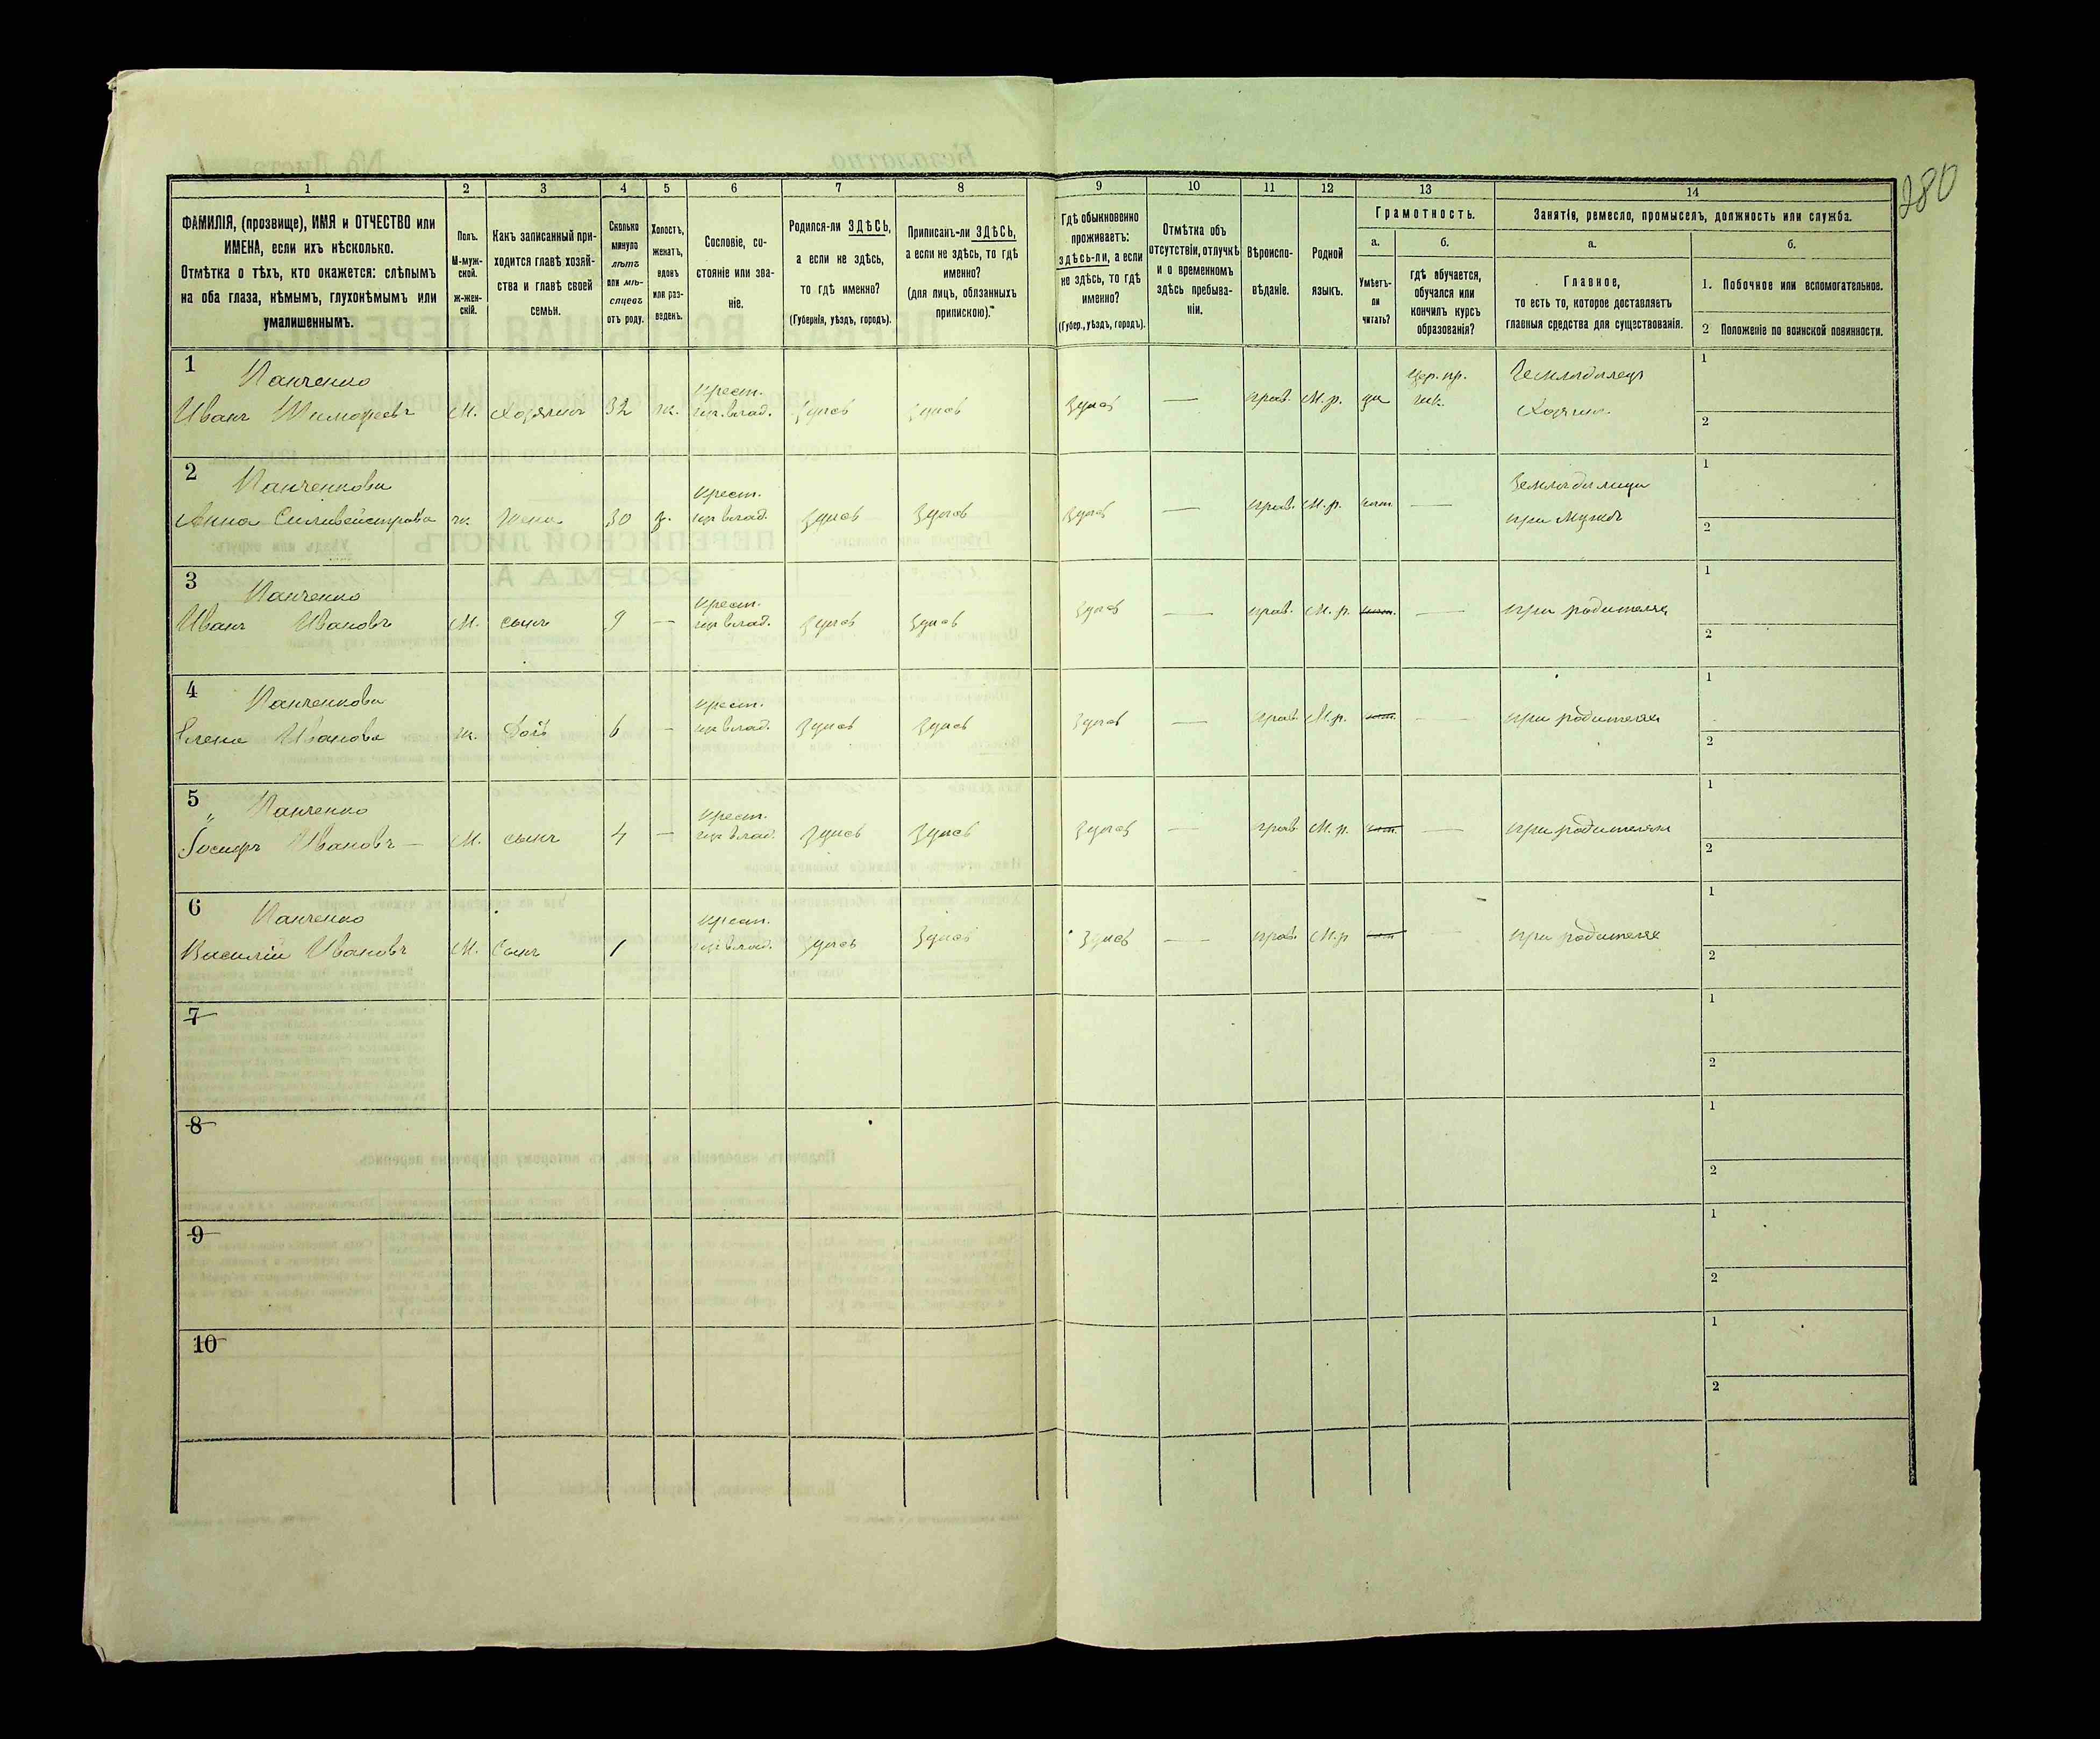 280
1 2 3 4 5 6 7 8 9 10 11 12 13 14
ФАМИЛІЯ, (прозвище), ИМЯ и ОТЧЕСТВО или
ИМЕНА, если ихъ нѣсколько.
Отмѣтка о тѣхъ, кто окажется: слѣпымъ
на оба глаза, нѣмымъ, глухонѣмымъ или
умалишеннымъ.
Полъ.
М-муж-
ской.
ж-жен-
скій.
Какъ записанный при-
ходится главѣ хозяй-
ства и главѣ своей
семьи.
Сколько
минуло
лѣтъ
или мѣ-
сяцевъ
отъ роду.
Холостъ,
женатъ,
вдовъ
или раз-
веденъ.
Сословіе, со-
стояніе или зва-
ніе.
Родился-ли ЗДѢСЬ,
а если не здѣсь,
то гдѣ именно?
(Губернія, уѣздъ, городъ).
Приписанъ-ли ЗДѢСЬ,
а если не здѣсь, то гдѣ
именно?
(для лицъ, обязанныхъ
припискою).
Гдѣ обыкновенно
проживаетъ:
здѣсь-ли, а если
не здѣсь, то гдѣ
именно?
(Губер., уѣздъ, городъ).
Отмѣтка объ
отсутствіи, отлучкѣ
и о временномъ
здѣсь пребыва-
ніи.
Вѣроиспо-
вѣданіе.
Родной
языкъ.
Грамотность.
а.
Умѣетъ-
ли
читать?
б.
гдѣ обучается,
обучался или
кончилъ курсъ
образованія?
Занятія, ремесло, промыселъ, должность или служба.
а.
Главное,
то есть то, которое доставляетъ
главныя средства для существованія.
б.
1. Побочное или вспомогательное.
2 Положеніе по воинской повинности.
1 Панченко Крест. Цер. пр. Земледелецъ 1
Иванъ Тимофеевъ М. Хозяинъ 32 ж. здѣсь здѣсь здѣсь — прав. М.р. да шк. Хозяин. 2
2 Панченкова Крест. 1
Анна ж. жена 30 з. здѣсь здѣсь здѣсь — прав. М.р. нѣт — при мужѣ 2
3 Панченко Крест. 1
Иванъ Ивановъ М. сынъ 9 — здѣсь здѣсь здѣсь — прав. М.р. нѣт. — при родителях 2
4 Панченкова Крест. 1
Елена Иванова ж. Дочь 6 — здѣсь здѣсь здѣсь — прав. М.р. нѣт. — при родителях 2
5 Панченко Крест. 1
Іосифъ Ивановъ — М. сынъ 4 — здѣсь здѣсь здѣсь — прав. М.р. нѣт. — при родителях 2
6 Панченко Крест. 1
Василій Ивановъ М. Сынъ 1 здѣсь здѣсь здѣсь — прав. М.р нѣт при родителях 2
7 1
2
8 1
2
9 1
2
10 1
2